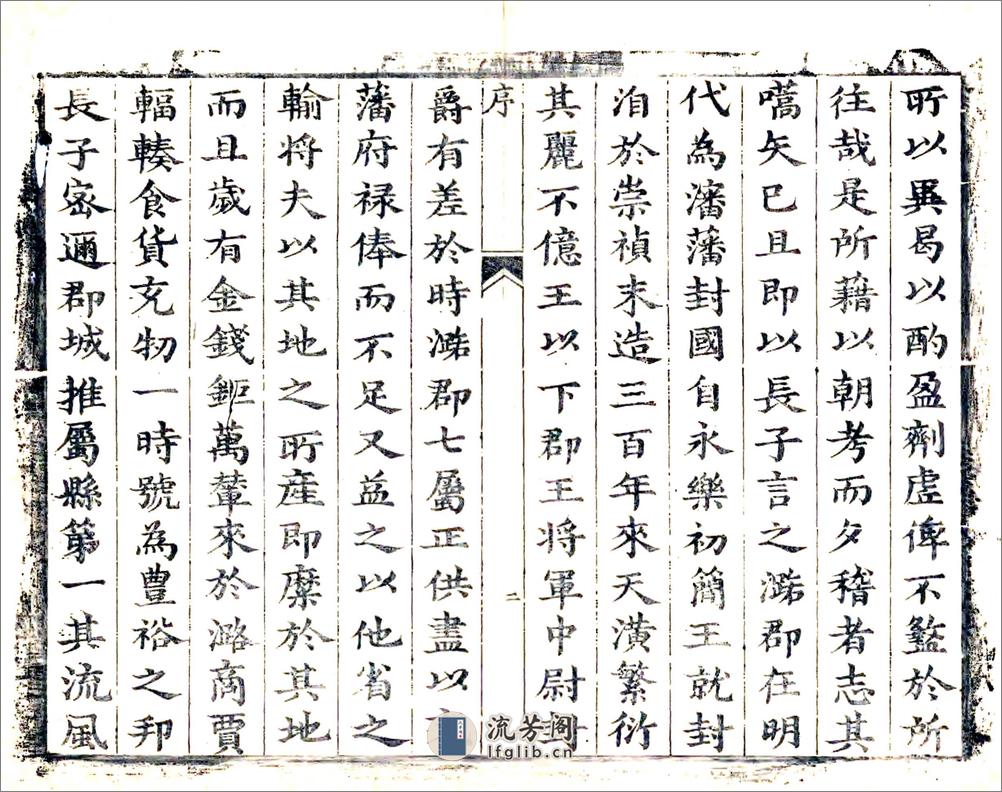 所以異曷以酌盈劑虛俾不盭於所
往哉是所藉以朝考而夕稽者志其
嚆矢已且即以長子言之潞郡在明
代為瀋藩封國自永樂初簡王就封
洎於崇禎末造三百年來天潢繁衍
其麗不億王以下郡王將軍中尉
序
二
爵有差於時潞郡七屬正供盡以
藩府祿俸而不足又益之以他省之
輸將夫以其地之所產即糜於其地
而且歲有金錢鉅萬輦來於潞商賈
輻輳食貨充牣一時號為豊裕之邦
長子密邇郡城推屬縣第一其流風
流芳阁
lfglib.cn